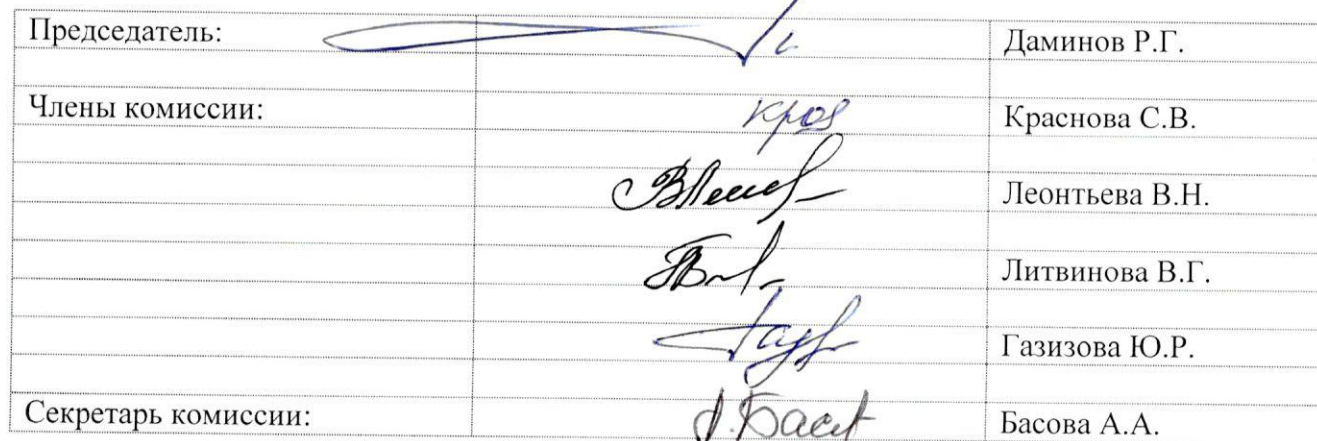 Председатель: Даминов Р.Г.
Члены комиссии: Краснова С.В.
Леонтьева В.Н.
Литвинова В.Г.
Газизова Ю.Р.
Секретарь комиссии: Басова А.А.